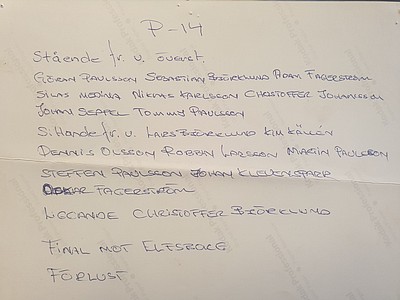 P-14
Stående fr. v. överst.
Göran Paulsson Sebastian Björklund Adam Fagerström
Silas Medina Niklas Karlsson Christoffer Johansson
Johan Seppel Tommy Paulsson
Sittande fr. v. Lars Björklund Kim Källén
Dennis Olsson Robbin Larsson Martin Paulsson
Steffen Paulsson Johan Klevensparr
Oskar Fagerström
Liggande Christoffer Björklund
Final mot Elfsborg
Förlust